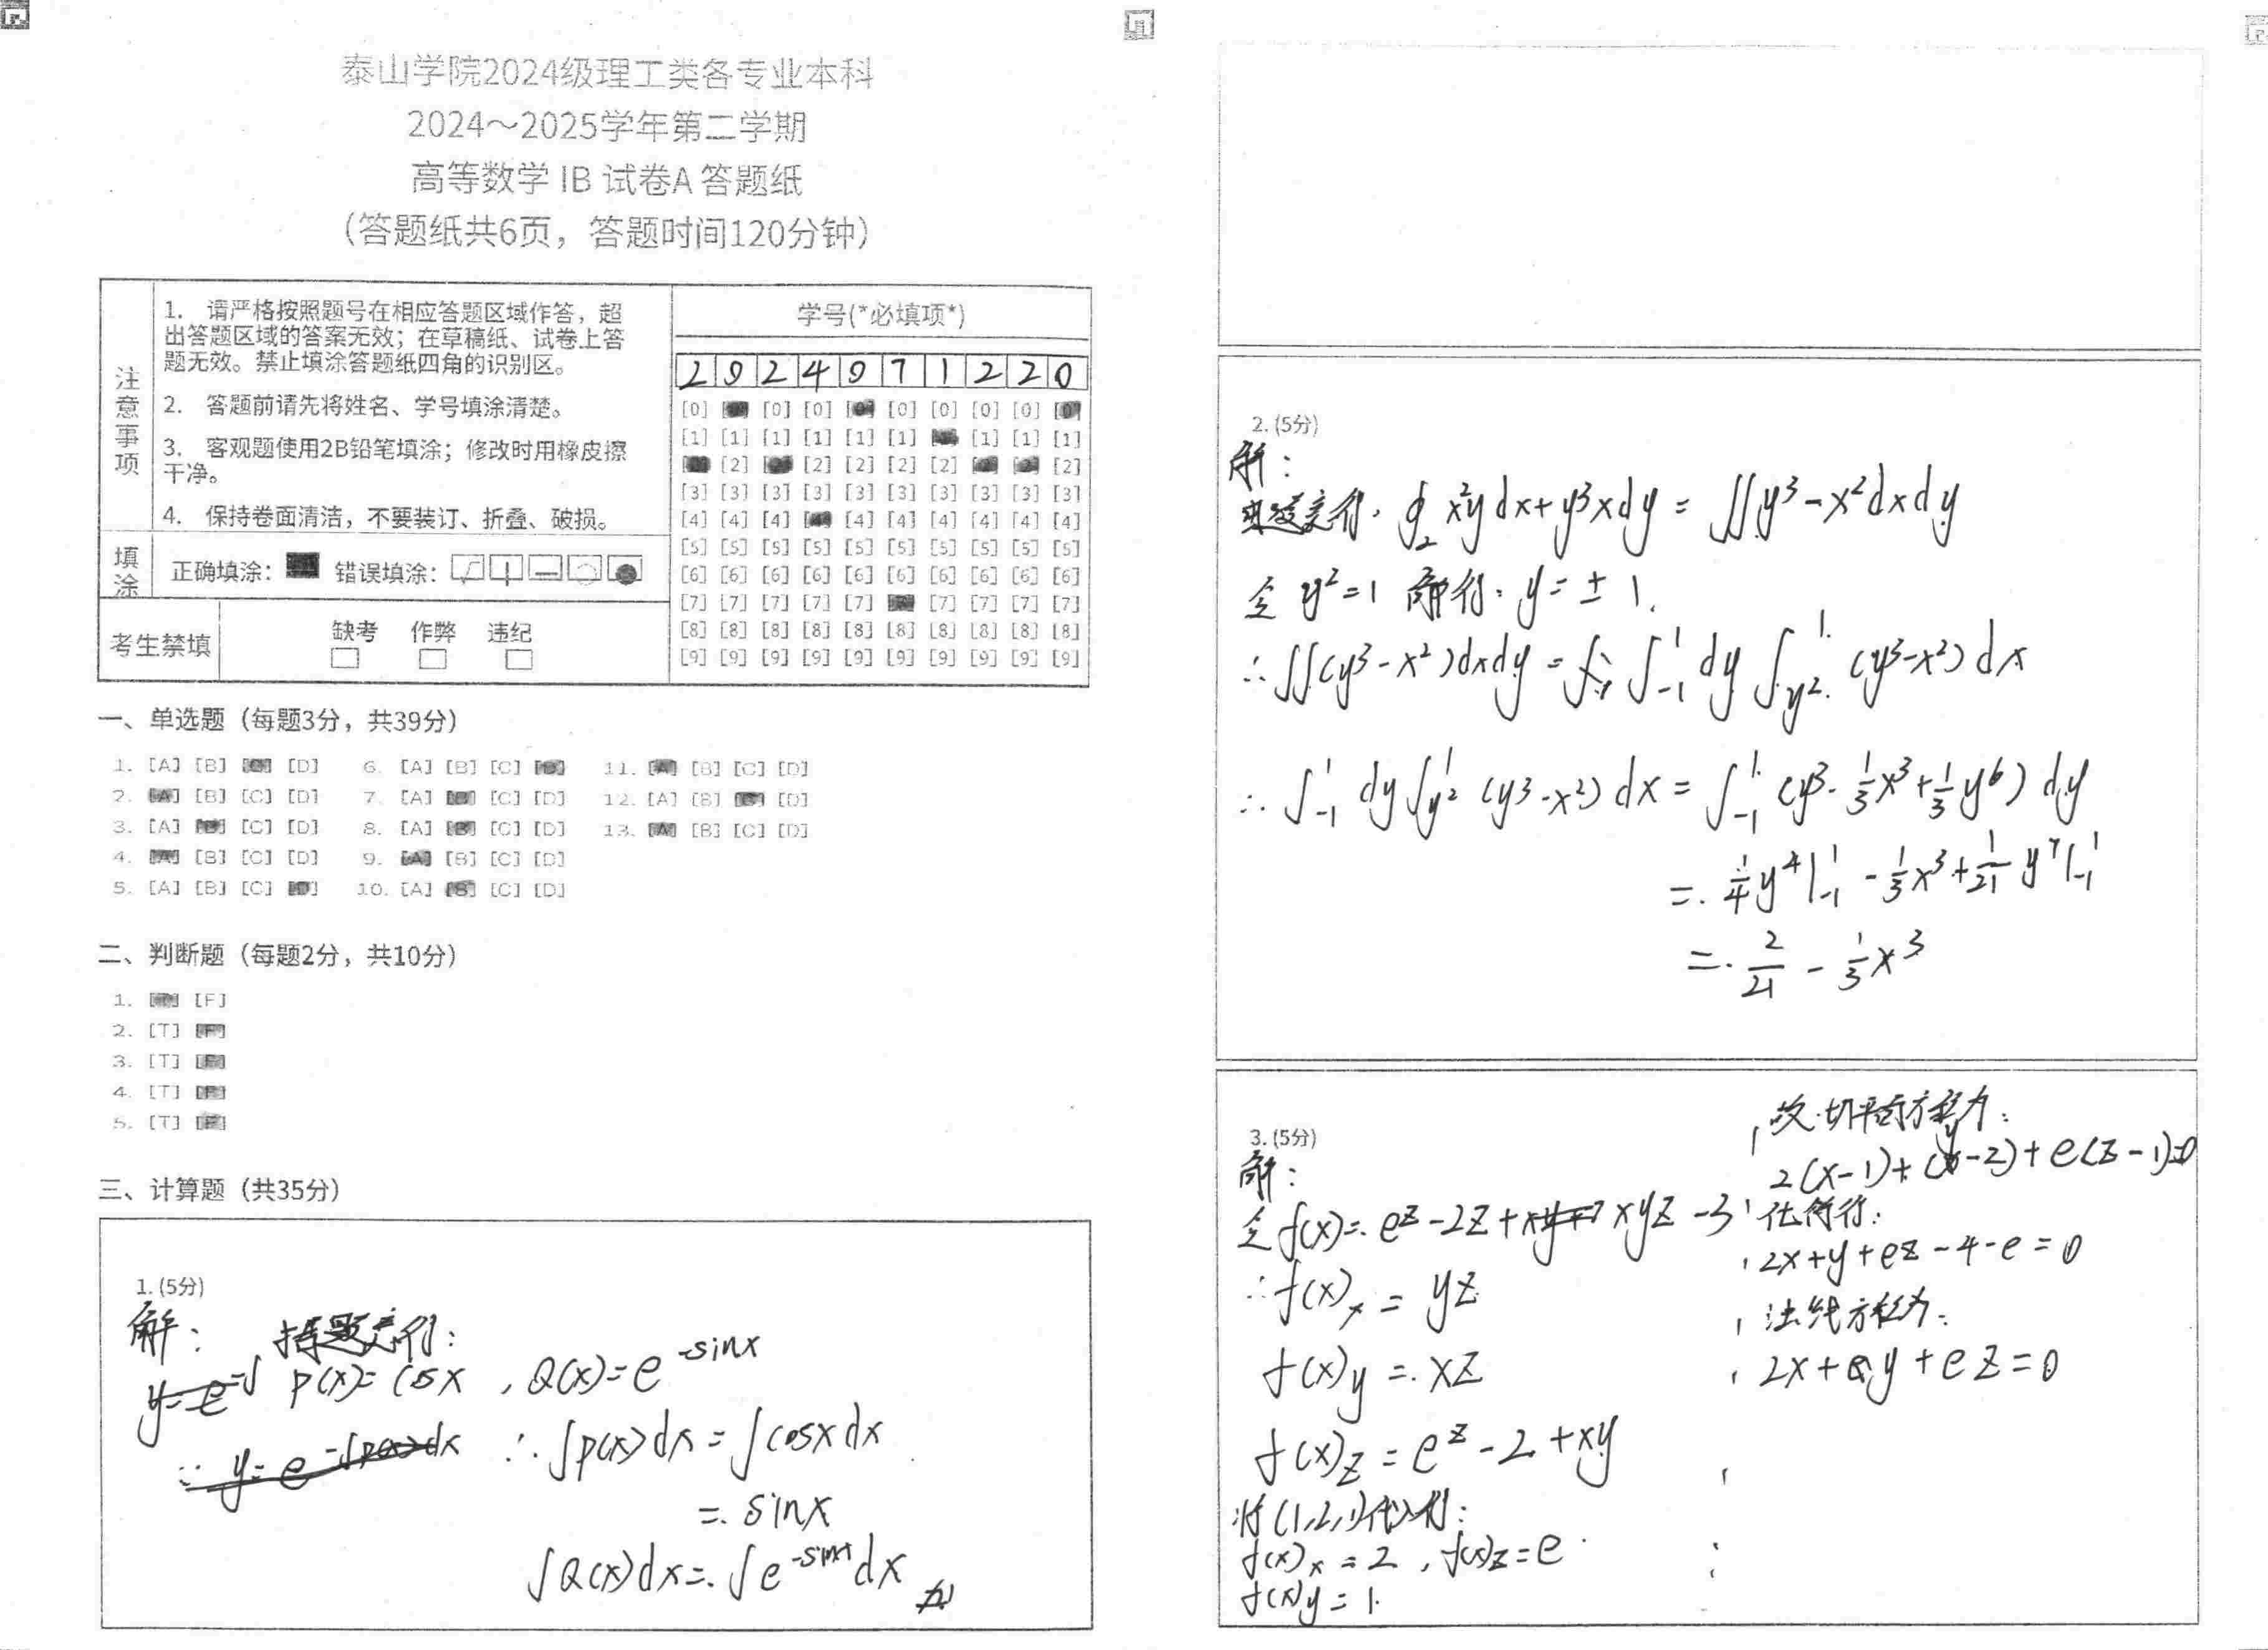 泰山学院2024级理工类各专业本科
2024～2025学年第二学期
高等数学 IB 试卷A 答题纸
（答题纸共6页，答题时间120分钟）
注意事项
1. 请严格按照题号在相应答题区域作答，超
出答题区域的答案无效；在草稿纸、试卷上答
题无效。禁止填涂答题纸四角的识别区。
2. 答题前请先将姓名、学号填涂清楚。
3. 客观题使用2B铅笔填涂；修改时用橡皮擦
干净。
4. 保持卷面清洁，不要装订、折叠、破损。
填涂 正确填涂： 错误填涂：
考生禁填 缺考 作弊 违纪
学号(*必填项*)
2 0 2 4 0 7 1 2 2 0
[0] [0] [0] [0] [0] [0] [0]
[1] [1] [1] [1] [1] [1] [1] [1] [1]
[2] [2] [2] [2] [2] [2]
[3] [3] [3] [3] [3] [3] [3] [3] [3] [3]
[4] [4] [4] [4] [4] [4] [4] [4] [4]
[5] [5] [5] [5] [5] [5] [5] [5] [5] [5]
[6] [6] [6] [6] [6] [6] [6] [6] [6] [6]
[7] [7] [7] [7] [7] [7] [7] [7] [7]
[8] [8] [8] [8] [8] [8] [8] [8] [8] [8]
[9] [9] [9] [9] [9] [9] [9] [9] [9] [9]
一、单选题（每题3分，共39分）
1. [A] [B] [D] 6. [A] [B] [C] 11. [B] [C] [D]
2. [B] [C] [D] 7. [A] [C] [D] 12. [A] [B] [D]
3. [A] [C] [D] 8. [A] [C] [D] 13. [B] [C] [D]
4. [B] [C] [D] 9. [B] [C] [D]
5. [A] [B] [C] 10. [A] [C] [D]
二、判断题（每题2分，共10分）
1. [F]
2. [T]
3. [T]
4. [T]
5. [T]
三、计算题（共35分）
1. (5分)
解：
P(x)=cosx , Q(x)=e^{-sinx}
∴ ∫p(x)dx = ∫cosxdx
= sinx
∫Q(x)dx = ∫e^{-sinx}dx
2. (5分)
解：
∮_L x²ydx+y³xdy = ∬y³-x²dxdy
令 y²=1 解得：y=±1.
∴∬(y³-x²)dxdy = ∫_{-1}^{1}dy∫_{y²}^{1}(y³-x²)dx
∴∫_{-1}^{1}dy∫_{y²}^{1}(y³-x²)dx = ∫_{-1}^{1}(y³-1/3x³+1/3y⁶)dy
= 1/4y⁴|_{-1}^{1} - 1/3x³+1/21 y⁷|_{-1}^{1}
= 2/21 - 1/3x³
3. (5分)
解：
令 f(x)= e^z-2z+xyz-3
∴f(x)_x = yz
f(x)_y = xz
f(x)_z = e^z-2+xy
将(1,2,1)代入得：
f(x)_x = 2 , f(x)_z = e
f(x)_y = 1.
故切平面方程为：
2(x-1)+(y-2)+e(z-1)=0
化简得：
2x+y+ez-4-e=0
法线方程为：
2x+y+ez=0